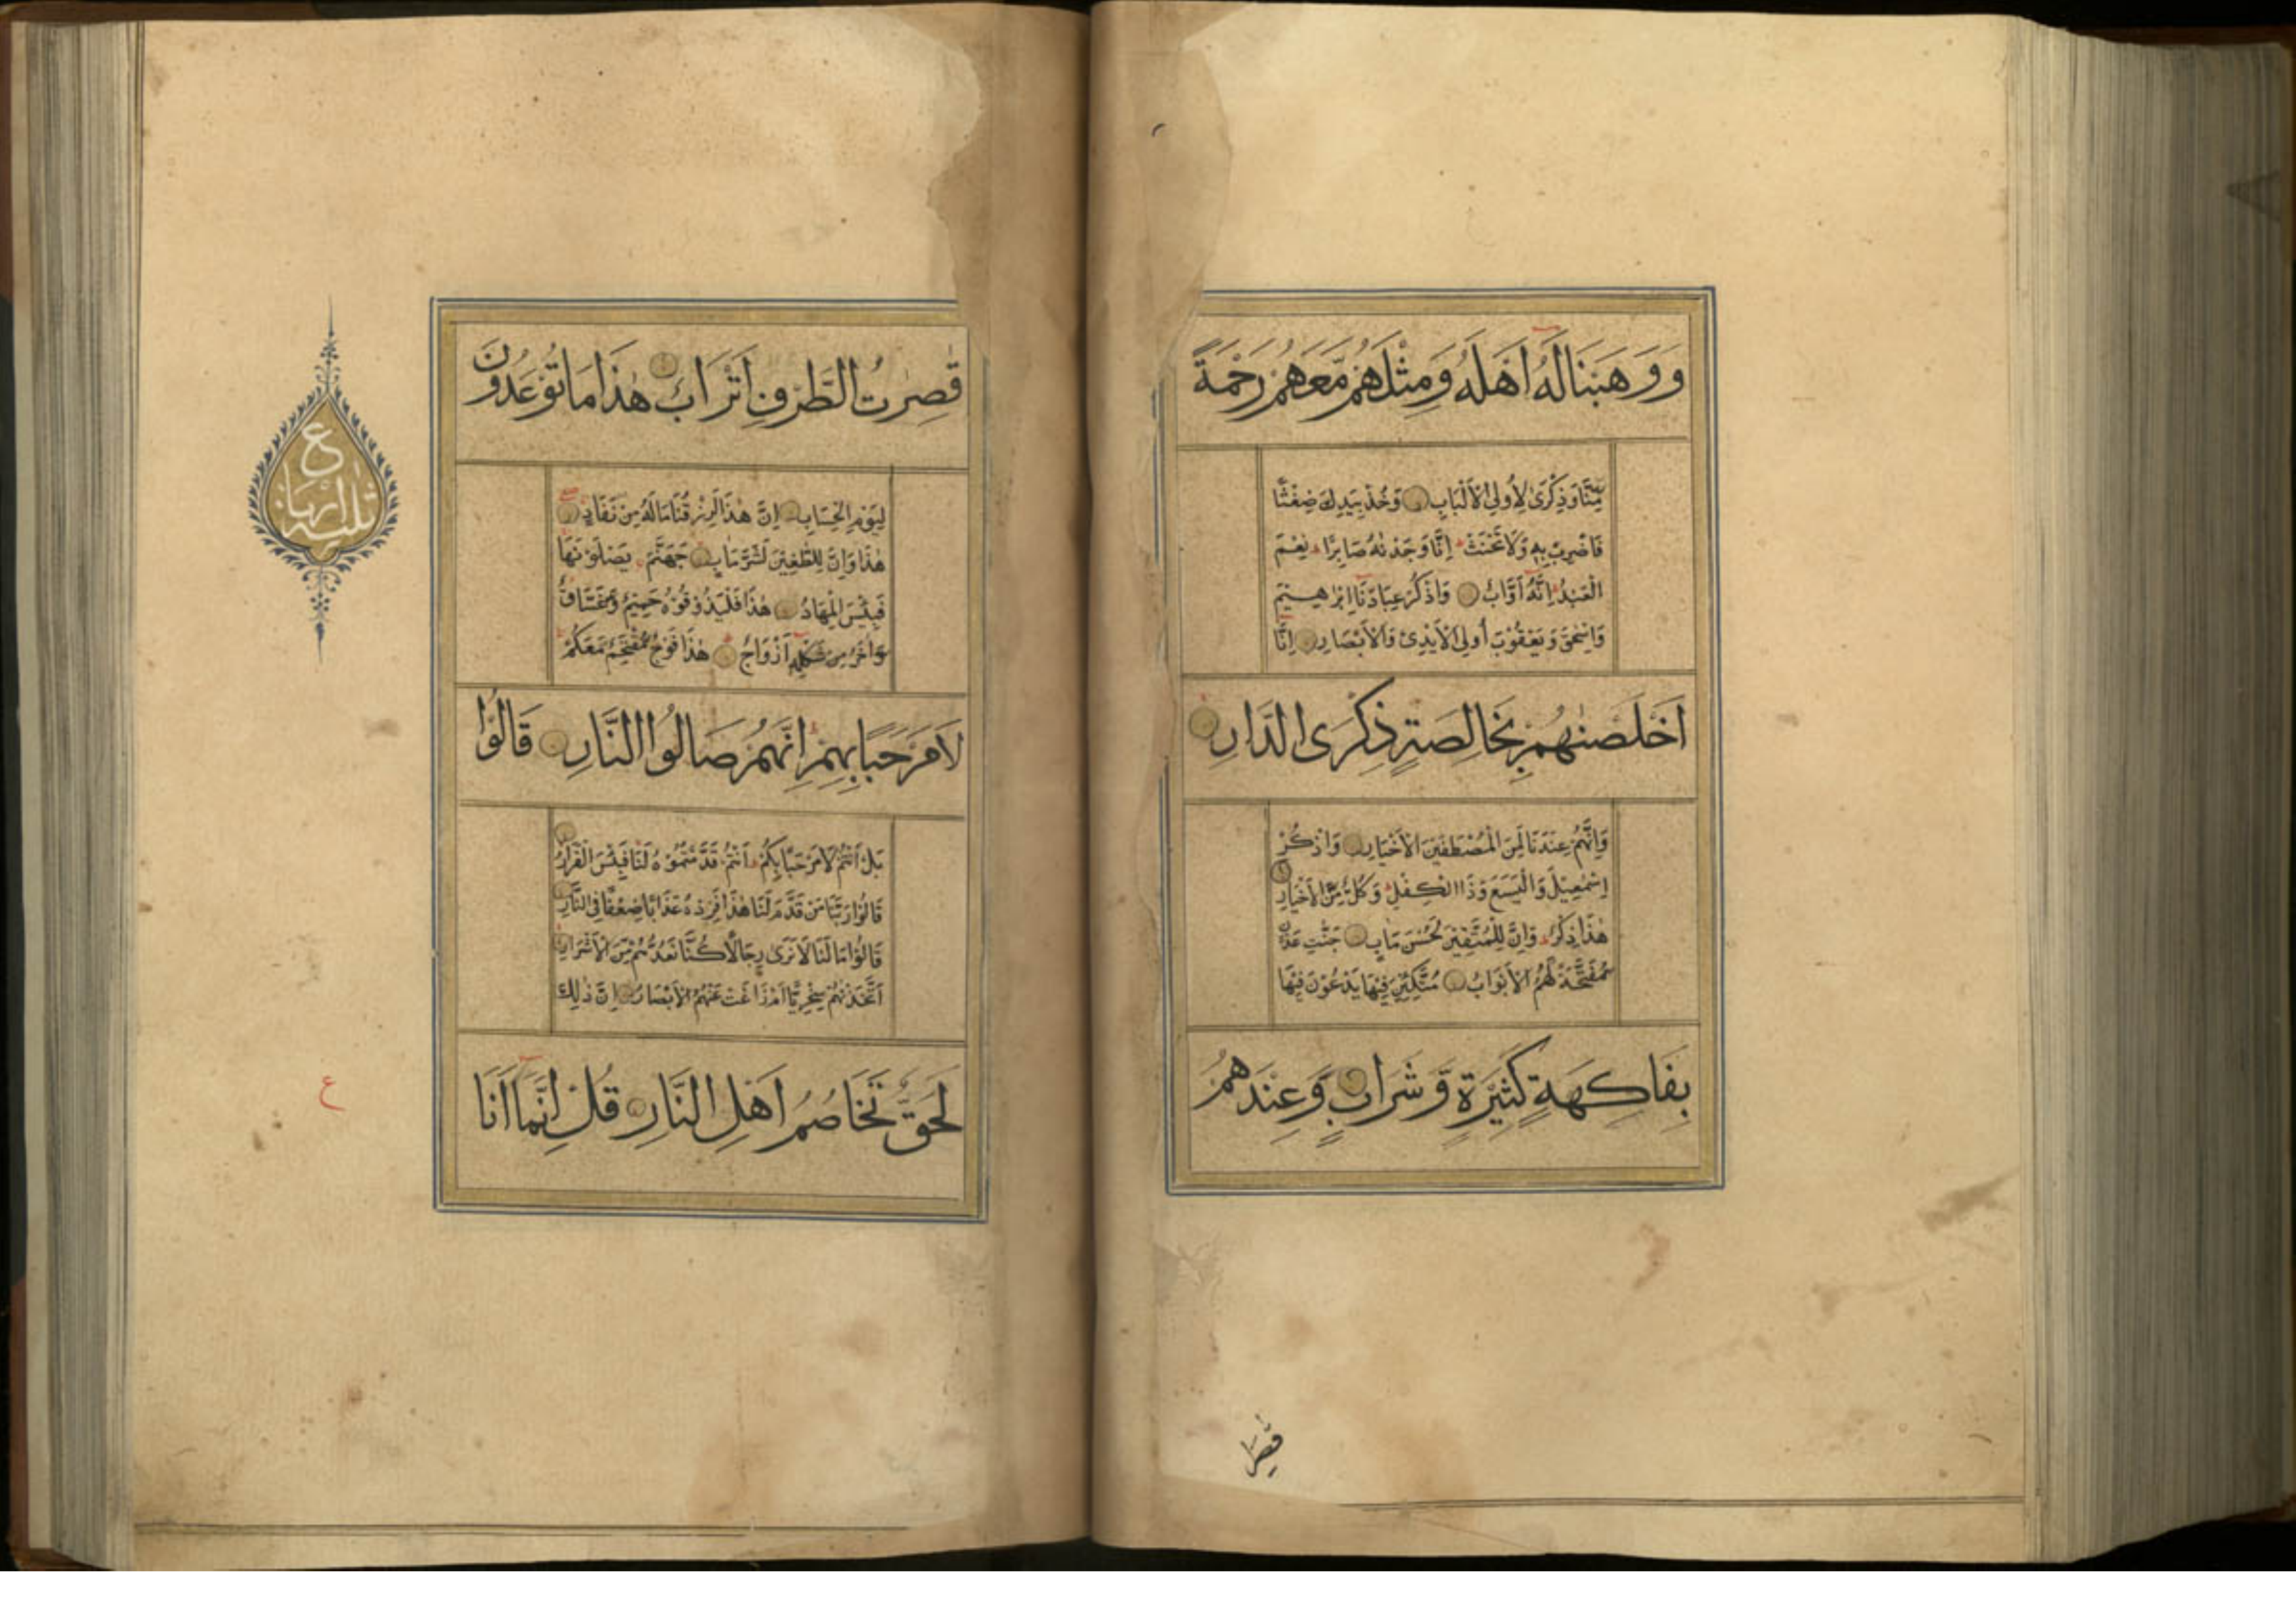 وَوَهَبْنَا لَهُ أَهْلَهُ وَمِثْلَهُمْ مَّعَهُمْ رَحْمَةً
مِّنَّا وَذِكْرَىٰ لِأُولِي الْأَلْبَابِ وَخُذْ بِيَدِكَ ضِغْثًا
فَاضْرِبْ بِهِ وَلَا تَحْنَثْ إِنَّا وَجَدْنٰهُ صَابِرًا نِعْمَ
الْعَبْدُ إِنَّهُ أَوَّابٌ وَاذْكُرْ عِبَادَنَا إِبْرٰهِيْمَ
وَإِسْحٰقَ وَيَعْقُوْبَ أُولِي الْأَيْدِيْ وَالْأَبْصَارِ إِنَّا
أَخْلَصْنٰهُمْ بِخَالِصَةٍ ذِكْرَى الدَّارِ
وَإِنَّهُمْ عِنْدَنَا لَمِنَ الْمُصْطَفَيْنَ الْأَخْيَارِ وَاذْكُرْ
إِسْمٰعِيْلَ وَالْيَسَعَ وَذَا الْكِفْلِ وَكُلٌّ مِّنَ الْأَخْيَارِ
هٰذَا ذِكْرٌ وَإِنَّ لِلْمُتَّقِيْنَ لَحُسْنَ مَاٰبٍ جَنّٰتِ عَدْنٍ
مُّفَتَّحَةً لَّهُمُ الْأَبْوَابُ مُتَّكِئِيْنَ فِيْهَا يَدْعُوْنَ فِيْهَا
بِفَاكِهَةٍ كَثِيْرَةٍ وَّشَرَابٍ وَعِنْدَهُمْ
قٰصِرٰ
قٰصِرٰتُ الطَّرْفِ أَتْرَابٌ هٰذَا مَا تُوْعَدُوْنَ
لِيَوْمِ الْحِسَابِ إِنَّ هٰذَا لَرِزْقُنَا مَا لَهُ مِنْ نَّفَادٍ
هٰذَا وَإِنَّ لِلطّٰغِيْنَ لَشَرَّ مَاٰبٍ جَهَنَّمَ يَصْلَوْنَهَا
فَبِئْسَ الْمِهَادُ هٰذَا فَلْيَذُوْقُوْهُ حَمِيْمٌ وَّغَسَّاقٌ
وَّاٰخَرُ مِنْ شَكْلِهِ أَزْوَاجٌ هٰذَا فَوْجٌ مُّقْتَحِمٌ مَّعَكُمْ
لَا مَرْحَبًا بِهِمْ إِنَّهُمْ صَالُوا النَّارِ قَالُوْا
بَلْ أَنْتُمْ لَا مَرْحَبًا بِكُمْ أَنْتُمْ قَدَّمْتُمُوْهُ لَنَا فَبِئْسَ الْقَرَارُ
قَالُوْا رَبَّنَا مَنْ قَدَّمَ لَنَا هٰذَا فَزِدْهُ عَذَابًا ضِعْفًا فِي النَّارِ
قَالُوْا مَا لَنَا لَا نَرٰى رِجَالًا كُنَّا نَعُدُّهُمْ مِّنَ الْأَشْرَارِ
أَتَّخَذْنٰهُمْ سِخْرِيًّا أَمْ زَاغَتْ عَنْهُمُ الْأَبْصَارُ إِنَّ ذٰلِكَ
لَحَقٌّ تَخَاصُمُ أَهْلِ النَّارِ قُلْ إِنَّمَا أَنَا
ع
ع